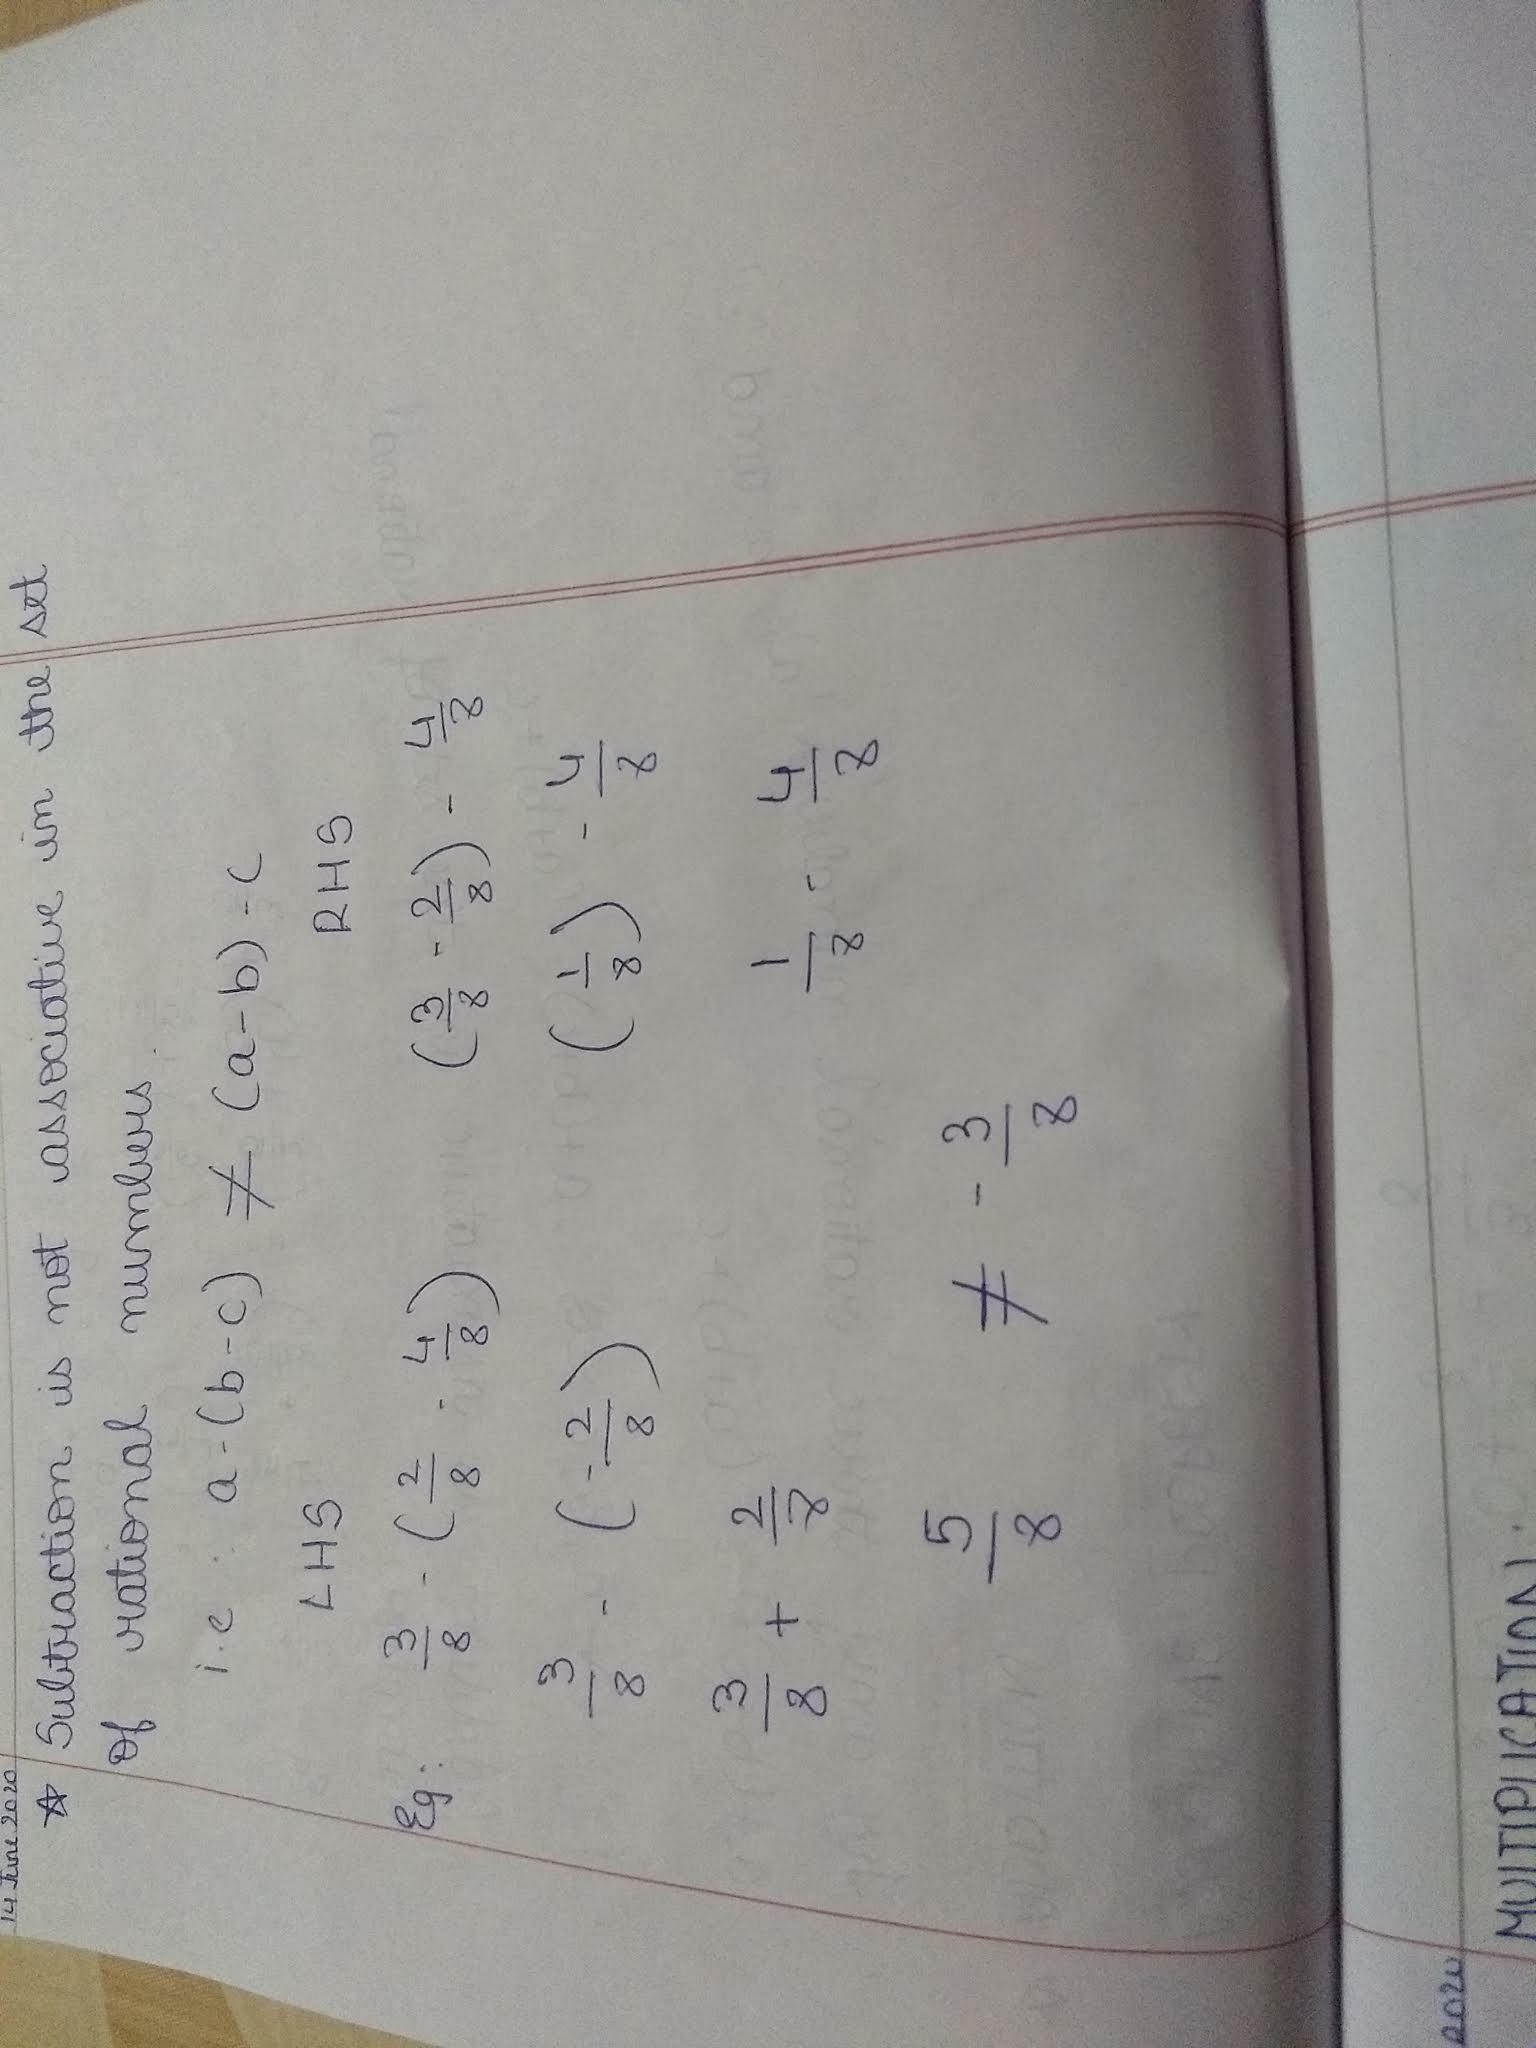 14 June 2020
☆ Subtraction is not associative in the set
of rational numbers.
i.e : a-(b-c) ≠ (a-b)-c
LHS RHS
Eg: 3/8 - (2/8 - 4/8) (3/8 - 2/8) - 4/8
3/8 - (-2/8) (1/8) - 4/8
3/8 + 2/8 1/8 - 4/8
5/8 ≠ - 3/8
2020
MULTIPLICATION: